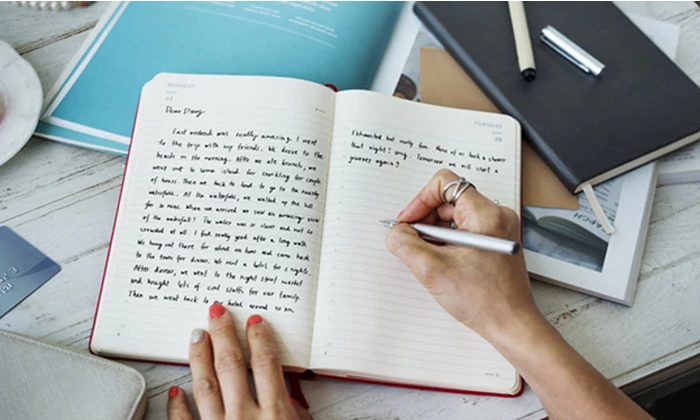 Dear Diary,
Last weekend was really amazing. I went
to the trip with my friends. We drove to the
beach in the morning. After we ate brunch, we
went out to some island for snorkling for couple
of hours. Then we back to land to go to the nearby
waterfall. At the waterfall, we walked up the hill
for 20 mins. When we arrived we saw an amazing view
of the waterfall! The water was so clear and not so
crowded at all. I felt really good after a long walk.
We hung out there for about an hour and came back
to the town for dinner. We rent a hotel for 2 nights.
After dinner, we went to the night street market
and bought lots of cool stuffs for our family.
Then we went back to our hotel around 10 pm.
Exhausted but really fun. None of us took a shower
that night! omg. Tomorrow we will start a
journey again!